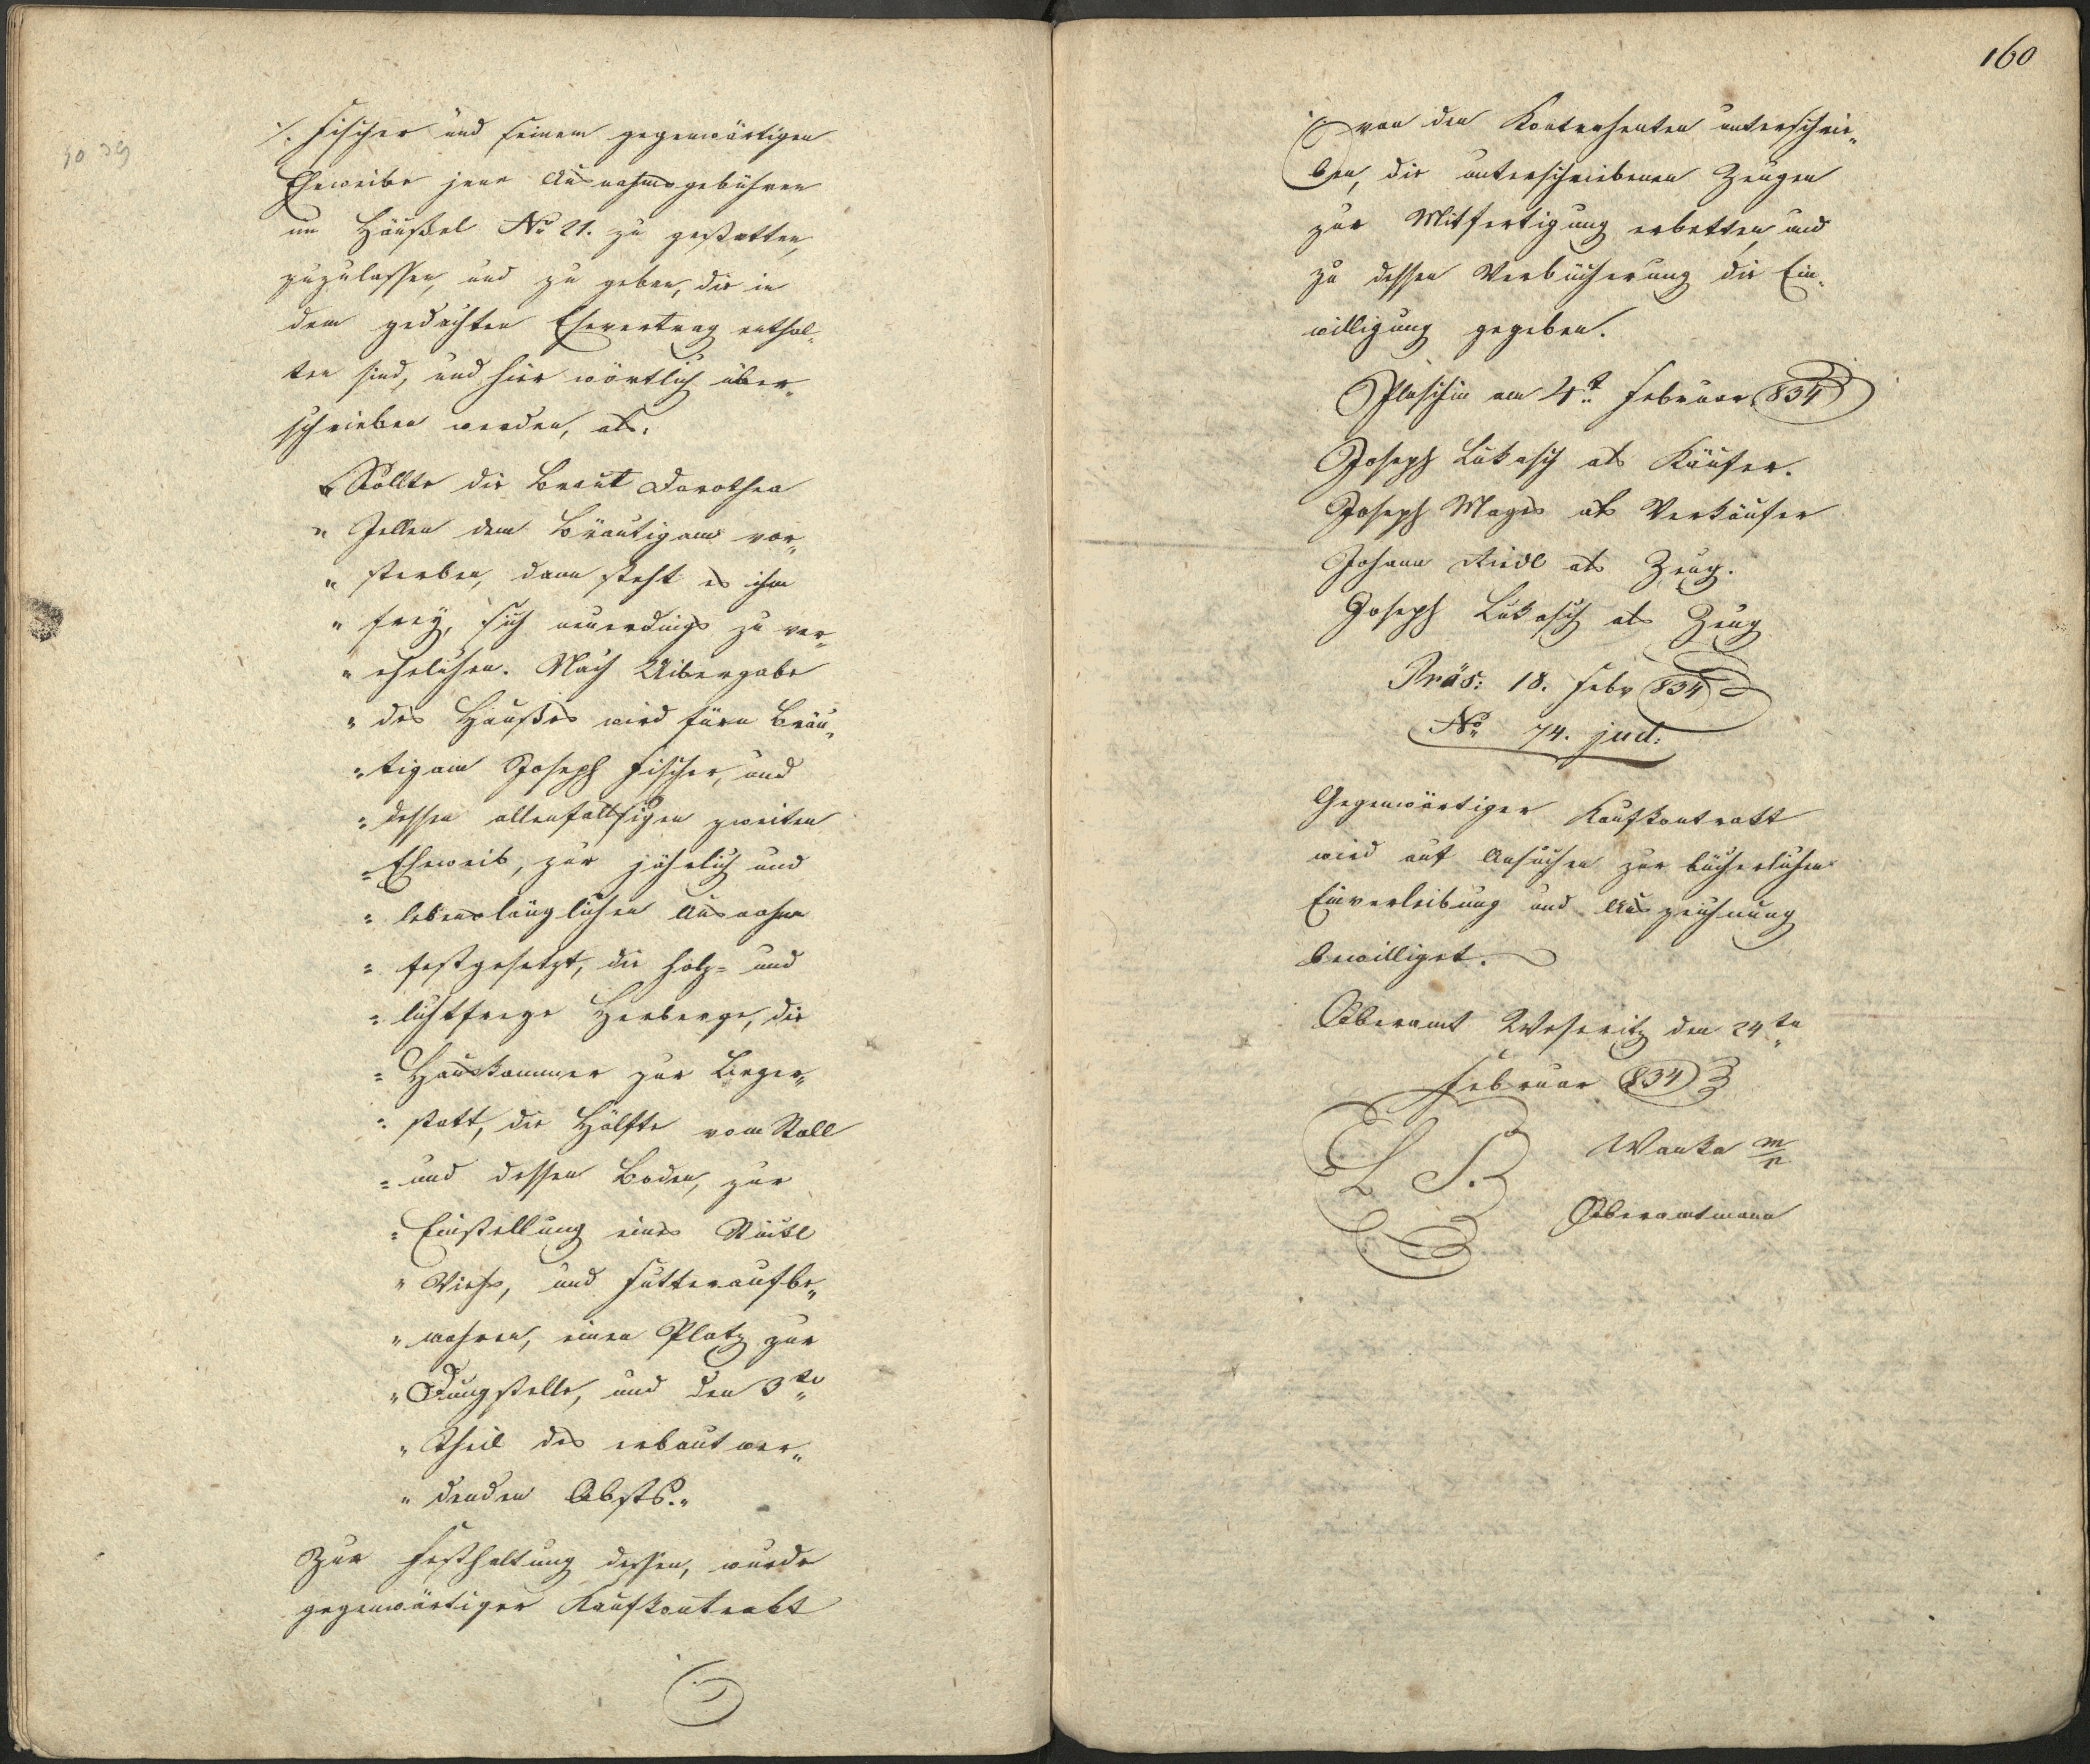 ./. Fischer und seinem gegenwärtigen
Eheweibe jene Ausnahmsgebühren
im Häußel No 21. zu gestatten,
zuzulassen, und zu geben, die in
dem gedachten Ehevertrag enthal„
ten sind, und hier wörtlich über„
schrieben werden, als:
„ Sollte die Braut Dorothea
„ Jellen dem Bräutigam vor„
„ sterben, dann steht es ihm
„ frey, sich neuerdings zu ver„
„ ehelichen. Nach Uibergabe
„ des Haußes wird fürn Bräu„
„ tigam Joseph Fischer, und
„ dessen allenfallsigen zweiten
„ Eheweib, zur jährlich und
„ lebenslänglichen Ausnahm
„ festgesetzt, die holz= und
„ lichtfreye Herberge, die
„ Hauskammer zur Lieger„
„ statt, die Hälfte vom Stall
„ und dessen Boden, zur
„ Einstellung eines Stückl
„ Viehs, und Futteraufbe„
„ wahren, einen Platz zur
„ Dungstelle, und den 3te„
„ Theil des erbaut wer„
„ denden Obsts.„
Zur Festhaltung dessen, wurde
gegenwärtiger Kaufkontrakt
160
von den Kontrahenten unterschrie„
ben, die unterschriebenen Zeugen
zur Mitfertigung erbetten, und
zu dessen Verbücherung die Ein„
willigung gegeben.
Plaschin am 4t Februar 834
Joseph Lukasch als Käufer.
Joseph Mages als Verkäufer
Johann Riedl als Zeug.
Joseph Lukasch als Zeug
Präs: 18. Febr 834
No 74. jud:
Gegenwärtiger Kaufkontrakt
wird auf Ansuchen zur bücherlichen
Einverleibung und Auszeichnung
bewilliget.
Oberamt Weseritz den 24te„
Februar 834
L S.
Wanka m/p
Oberamtmann